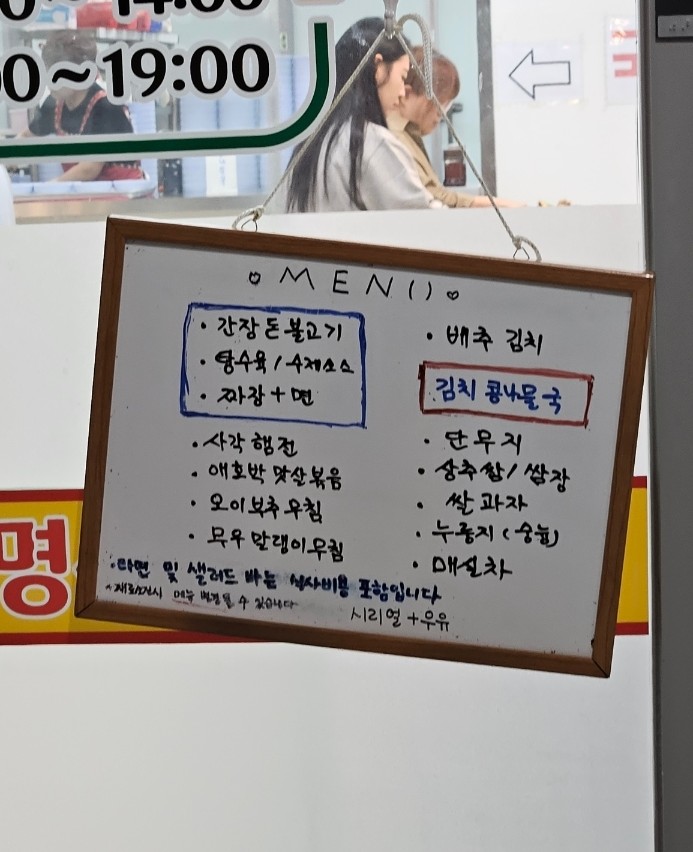 ~14:00
00~19:00
MENU
· 간장 돈불고기
· 탕수육 / 수제소스
· 짜장 + 면
· 사각 햄전
· 애호박 맛살볶음
· 오이 부추 무침
· 무우 말랭이 무침
· 배추 김치
김치 콩나물 국
· 단무지
· 상추쌈 / 쌈장
· 쌀 과자
· 누룽지 (숭늉)
· 매실차
· 라면 및 샐러드 바는 식사비용 포함입니다
* 재료소진시 메뉴 변경될 수 있습니다
시리얼 + 우유
명